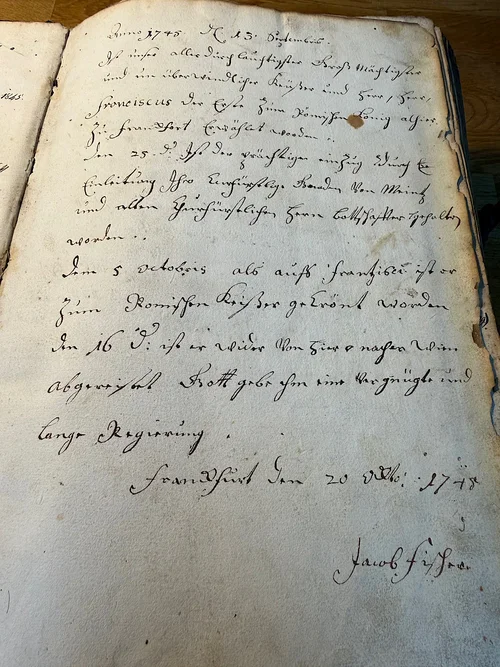 1845.
Anno 1745 D. 13. Septembris.
Ist unser aller durchlauchtigster Groß Mächtigster
und un überwindlicher Keißer und Herr, Herr,
Franciscus der Erste Zum Römischen König alhier
Zu Franckfort Erwählt worden ..
den 25 d. Ist der prächtige einzug durch
Einleitung Ihro Kurfürstlige Gnaden Von Meintz
und allen Churfürstlichen Herrn bottschaffter gehalten
worden ..
dem 5 octobris als auff Frantzisci ist er
Zum Romischen Keißer gekrönt worden
den 16 d: ist er wider Von hier nacher Wien
abgereißet Gott gebe ihm eine Vergnügte und
lange Regierung .
Franckfurt den 20 Octo: 1745
Jacob Fischer